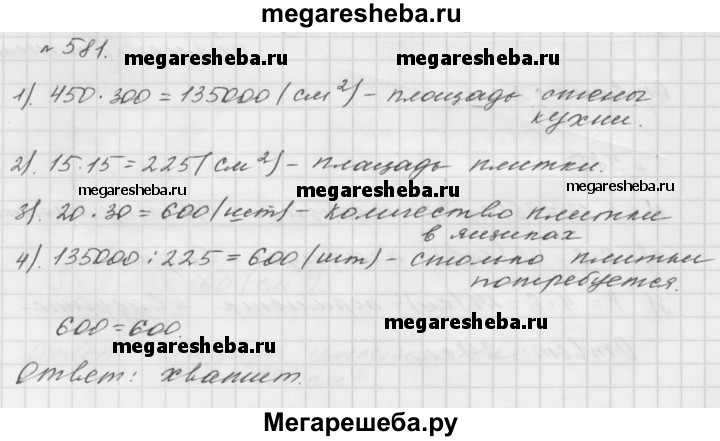 megaresheba.ru
№ 581.
megaresheba.ru megaresheba.ru
1). 450·300=135000(см²)- площадь стены
кухни.
2). 15·15=225(см²)- площадь плитки.
megaresheba.ru megaresheba.ru
3). 20·30=600(шт)- количество плитки
в ящиках
4). 135000:225=600(шт)- столько плитки
потребуется.
600=600.
megaresheba.ru megaresheba.ru
Ответ: хватит.
Мегарешеба.ру